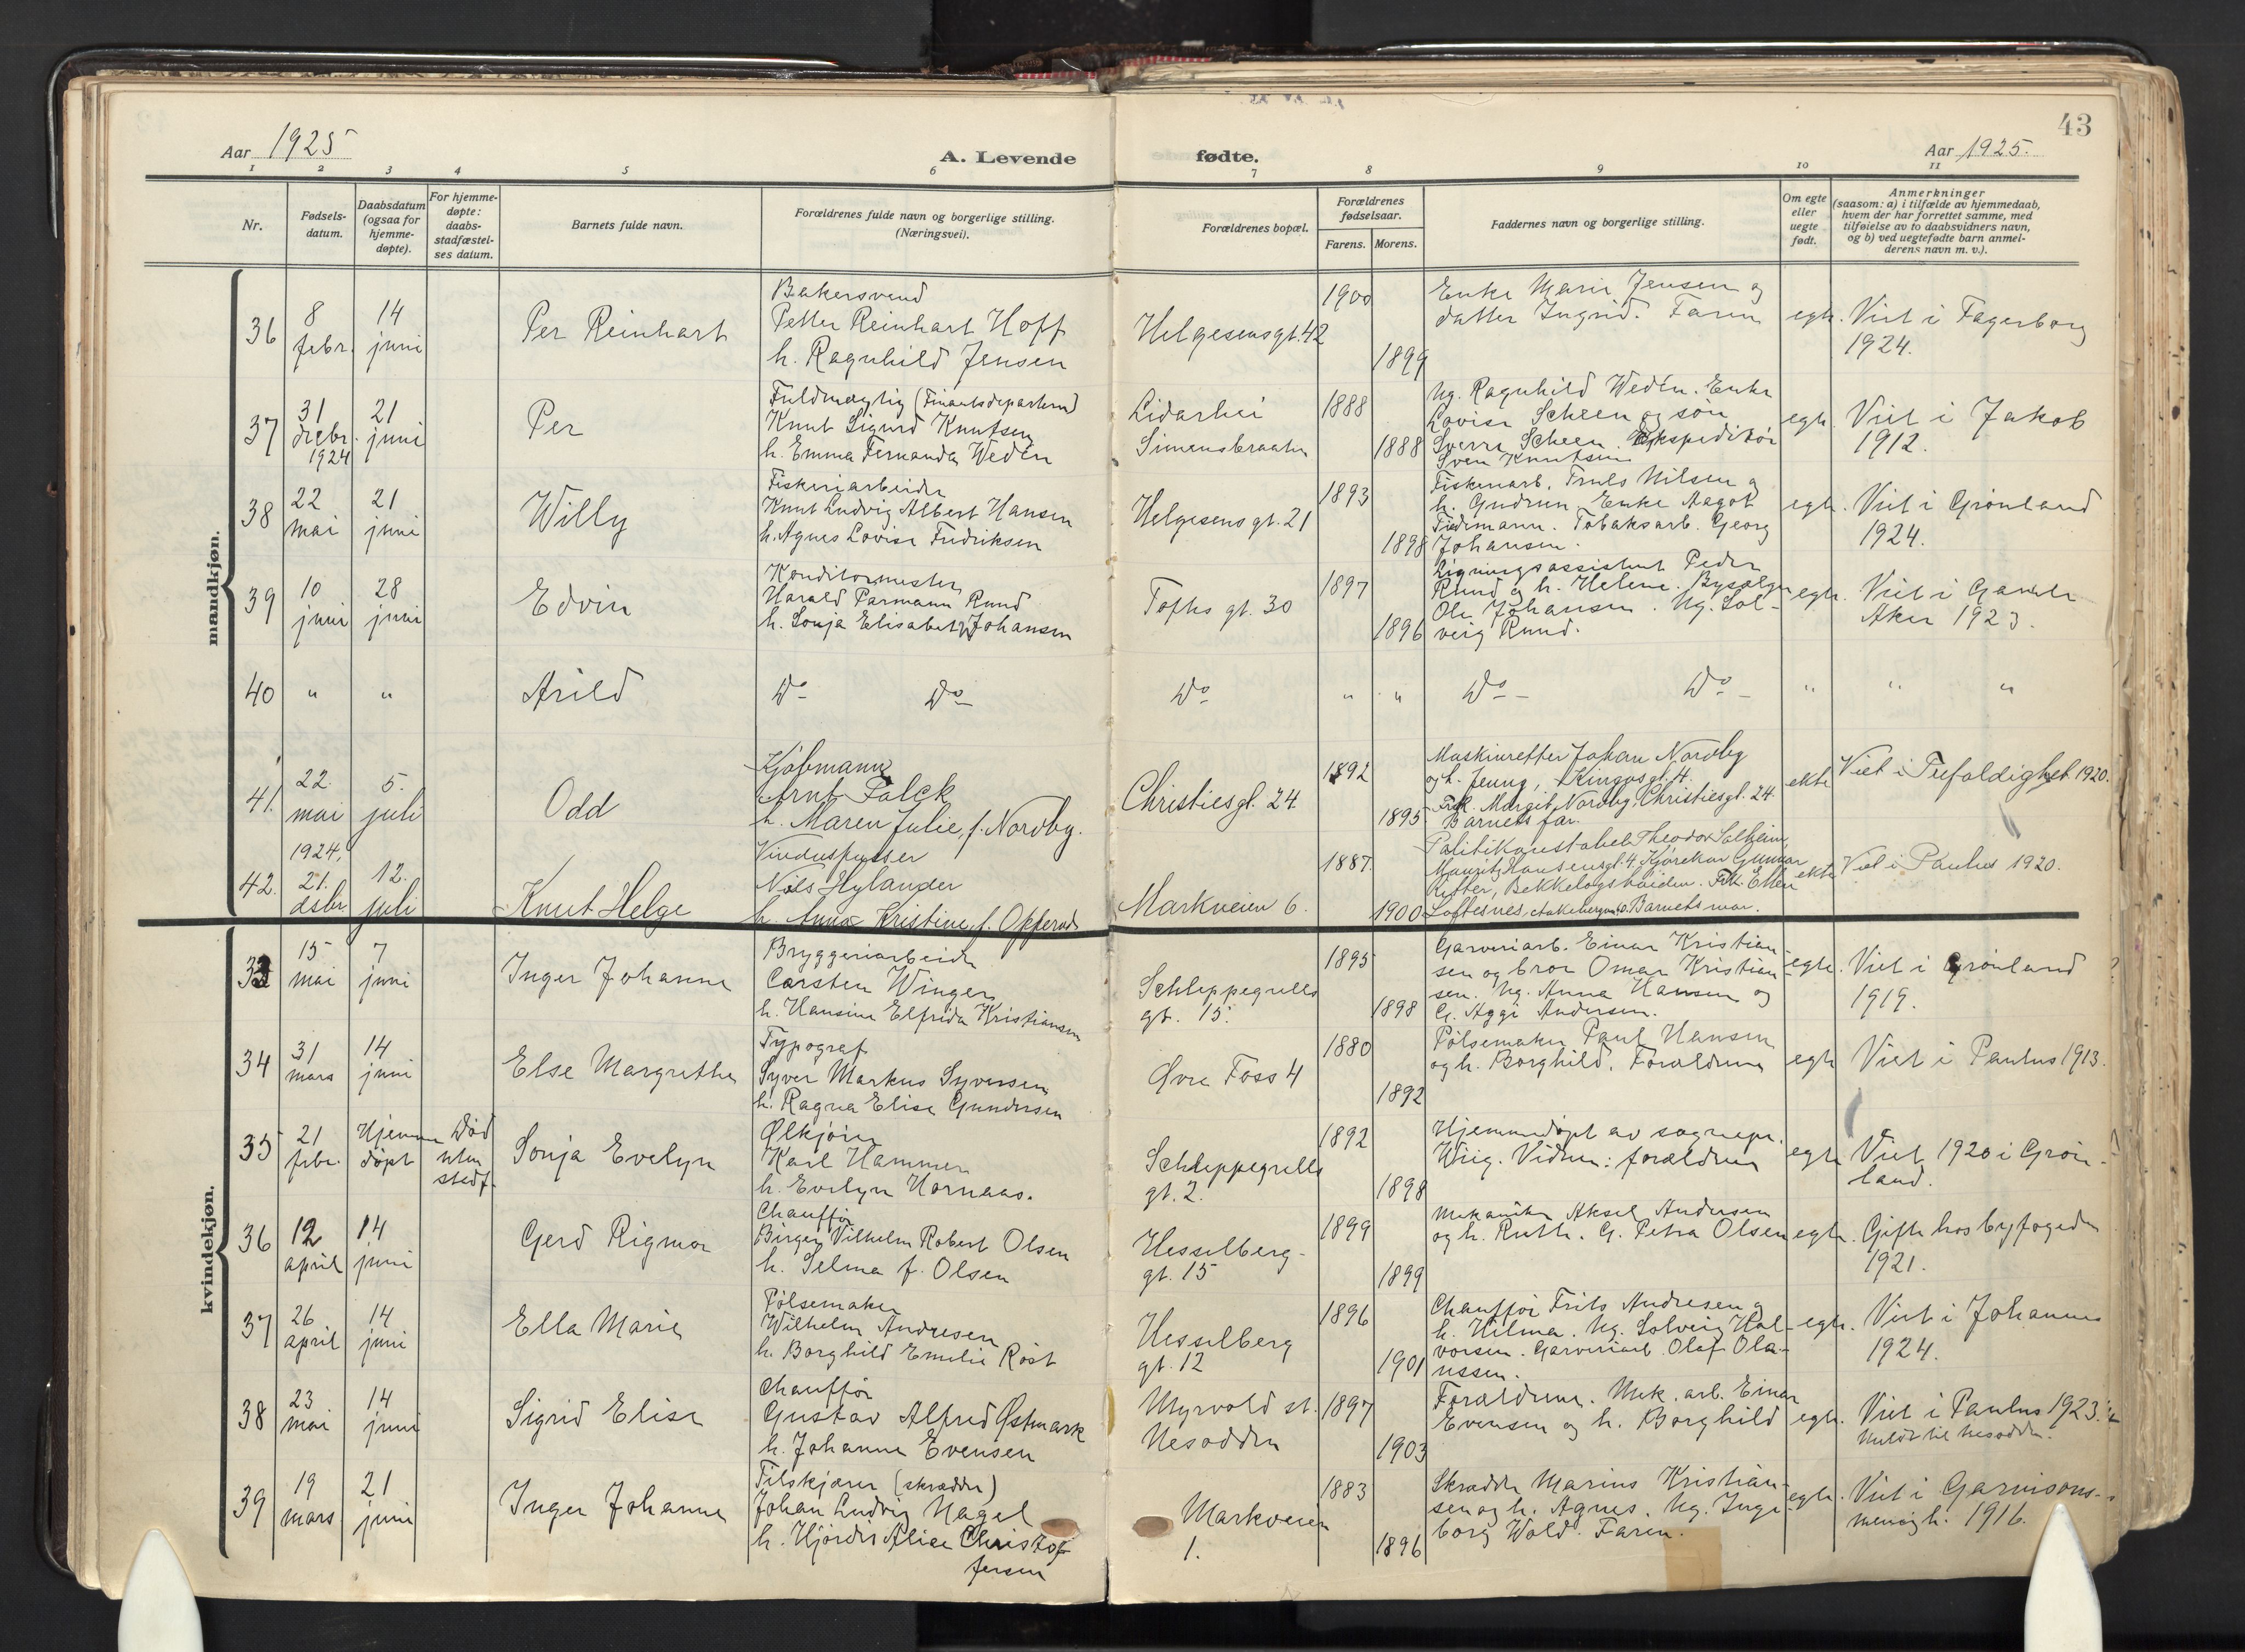 43
Aar 1925
A. Levende fødte.
Aar 1925.
1 2 3 4 5 6 7 8 9 10 11
Nr.
Fødsels-
datum.
Daabsdatum
(ogsaa for
hjemme-
døpte).
For hjemme-
døpte:
daabs-
stadfæstel-
ses datum.
Barnets fulde navn.
Forældrenes fulde navn og borgerlige stilling.
(Næringsvei).
Forældrenes bopæl.
Forældrenes
fødselsaar.
Farens. Morens.
Faddernes navn og borgerlige stilling.
Om egte
eller
uegte
født.
Anmerkninger
(saasom: a) i tilfælde av hjemmedaab,
hvem der har forrettet samme, med
tilføielse av to daabsvidners navn,
og b) ved uegtefødte barn anmel-
derens navn m. v.).
mandkjøn.
36
8
febr.
14
juni
Per Reinhart
Bakersvend
Petter Reinhart Hoff
h. Ragnhild Jensen
Helgesensgt. 42
1900
1899
Enke Marie Jensen og
datter Ingrid. Faren
egte.
Viet i Fagerborg
1924.
37
31
decbr.
1924
21
juni
Per
Fuldmægtig (Finantsdepartem)
Knut Sigurd Knutsen
h. Emma Fernanda Wedén
Lidarhei
Simensbraaten
1888
1888
Ug. Ragnhild Wedén. Enke
Lovise Scheen og søn
Sverre Scheen. Ekspeditør
Sven Knutsen
egte.
Viet i Jakob
1912.
38
22
mai
21
juni
Willy
Fiskeriarbeider
Knut Ludvig Albert Hansen
h. Agnes Lovise Fredriksen
Helgesens gt. 21
1893
1898
Fiskeriarb. Truls Nilsen og
h. Gudrun. Enke Aagot
Tiedemann. Tobaksarb. Georg
Johansen.
egte.
Viet i Grønland
1924.
39
10
juni
28
juni
Edvin
Konditormester
Harald Parmann Rund
h. Sonja Elisabeth Johansen
Toftes gt. 30
1897
1896
Ligningsassistent Peder
Rund og h. Helene. Bysælger
Ole Johansen. Ug. Sol-
veig Rund.
egte.
Viet i Gamle
Aker 1923.
40
"
"
Arild
Do Do
Do
" "
Do Do
"
" "
41.
22.
mai
5.
juli
Odd
Kjøbmann
Arnt Falck
h. Maren Julie, f. Nordby.
Christiesgt. 24.
1892
1895
Maskinretter Johan Nordby
og h. Jenny, Kingosgt. 4.
Frk. Margit Nordby, Christiesgt. 24.
Barnets far.
ekte
Viet i Trefoldighet 1920.
42.
1924,
21.
dsbr
12.
juli
Knut Helge
Vinduspusser
Nils Hylander
h. Anna Kristine, f. Opperud
Markveien 6.
1887.
1900
Politikonstabel Theodor Solheim,
Mauritz Hansensgt. 4. Kjørekar Gunnar
Bekkelagshøiden. Frk. Ellen
Loftesnes, Barnets mor.
ekte
Viet i Paulus 1920.
kvindekjøn.
33
15
mai
7
juni
Inger Johanne
Bryggeriarbeider
Carsten Winger
h. Hansine Elfrida Kristiansen
Schleppegrells
gt. 15.
1895
1898
Garveriarb. Einar Kristian-
sen og bror Omar Kristian-
sen. Ug. Anna Hansen og
G. Aggi Andersen.
egte.
Viet i Grønland
1919.
34
31
mars
14
juni
Else Margrethe
Typograf
Syver Markus Syversen
h. Ragna Elise Gundersen
Øvre Foss 4
1880
1892
Pølsemaker Paul Hansen
og h. Borghild. Forældrene
egte
Viet i Paulus 1913.
35
21
febr.
Hjemme
døpt
Død
uten
stadf.
Sonja Evelyn
Ølkjører
Karl Hammer
h. Evelyn Hornaas.
Schleppegrells
gt. 2.
1892
1898
Hjemmedøpt av sognepr.
Wiig. Vidner: forældrene
egte
Viet 1920 i Grøn-
land.
36
12
april
14
juni
Gerd Rigmor
Chauffør
Birger Vilhelm Robert Olsen
h. Selma f. Olsen
Hesselberg-
gt. 15
1899
1899
Mekaniker Aksel Andersen
og h. Ruth. G. Petra Olsen
egte.
Gifte hos byfogden
1921.
37
26
april
14
juni
Ella Marie
Pølsemaker
Wilhelm Andresen
h. Borghild Emelie Røst
Hesselberg
gt. 12
1896
1901
Chauffør Frits Andresen og
h. Hilma. Ug. Solveig Hal-
vorsen. Garveriarb. Olaf Ola-
ussen.
egte.
Viet i Johannes
1924.
38
23
mai
14
juni
Sigrid Elise
Chauffør
Gustav Alfred Østmark
h. Johanne Evensen
Myrvold st.
Nesodden
1897
1903
Forældrene. Mek. arb. Einar
Evensen og h. Borghild
egte.
Viet i Paulus 1923.
Meldt til Nesodden.
39
19
mars
21
juni
Inger Johanne
Tilskjærer (skrædder)
Johan Ludvig Nagel
h. Hjørdis Alice Christof
fersen
Markveien
1.
1883
1896
Skrædder Marius Kristian-
sen og h. Agnes. Ug. Inge-
borg Wold. Faren.
egte.
Viet i Garnisons-
menigh. 1916.